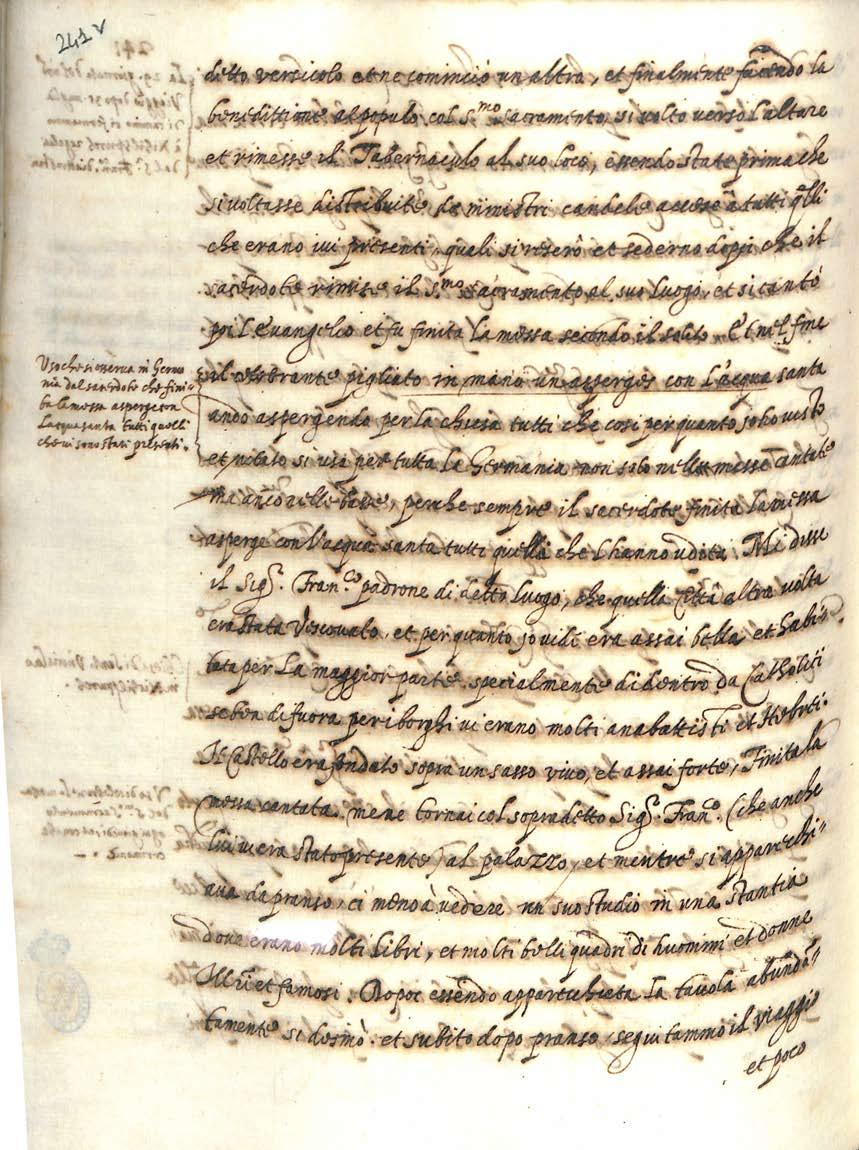 241 v
detto versicolo et ne cominciò un altro, et finalmente facendo la
benedittione al populo col s.mo sacramento si voltò verso l'altare
et rimesse il Tabernaculo al suo loco, essendo state prima che
si voltasse distribuite da ministri candele accese à tutti q̃lli
che erano ivi presenti, quali si resero et sederno doppi che il
sacerdote rimise il s.mo sacramento al suo luogo, et si cantò
poi l'Evangelio et fu finita la messa secondo il solito. Et nel fine
il celebrante pigliato in mano un asperges con l'acqua santa
andò aspergendo per la chiesa tutti che così per quanto io ho visto
et notato si usa per tutta la Germania non solo nelle messe cantate
ma anco nelle basse, perche sempre il sacerdote finita la messa
asperge con l'acqua santa tutti quelli che l'hanno udita. Mi disse
il Sigr. Franco. padrone di detto luogo, che quella Città altra volta
era stata Vescovato, et per quanto io vidi era assai bella et habi=
tata per la maggior parte specialmente di dentro da Catholici
se ben di fuora per i borghi vi erano molti anabattisti et Hebrei.
Il Castello era fondato sopra un sasso vivo, et assai forte, Finita la
messa cantata me ne tornai col sopradetto Sigr. Franco. (che anche
lui vi era stato presente) al palazzo, et mentre si apparecchi=
ava da pranso, ci menò à vedere un suo studio in una stantia
dove erano molti libri, et molti belli quadri di huomini et donne
Illri et famosi. Dopoi essendo apparechieta la tavola abundã=
tamente si desinò: et subito dopo pranso seguitammo il viaggio
et poco
Uso che si osserva in Germa
nia del sacerdote che fini=
ta la messa asperge con
l'acqua santa tutti quelli
che vi sono stati presenti.